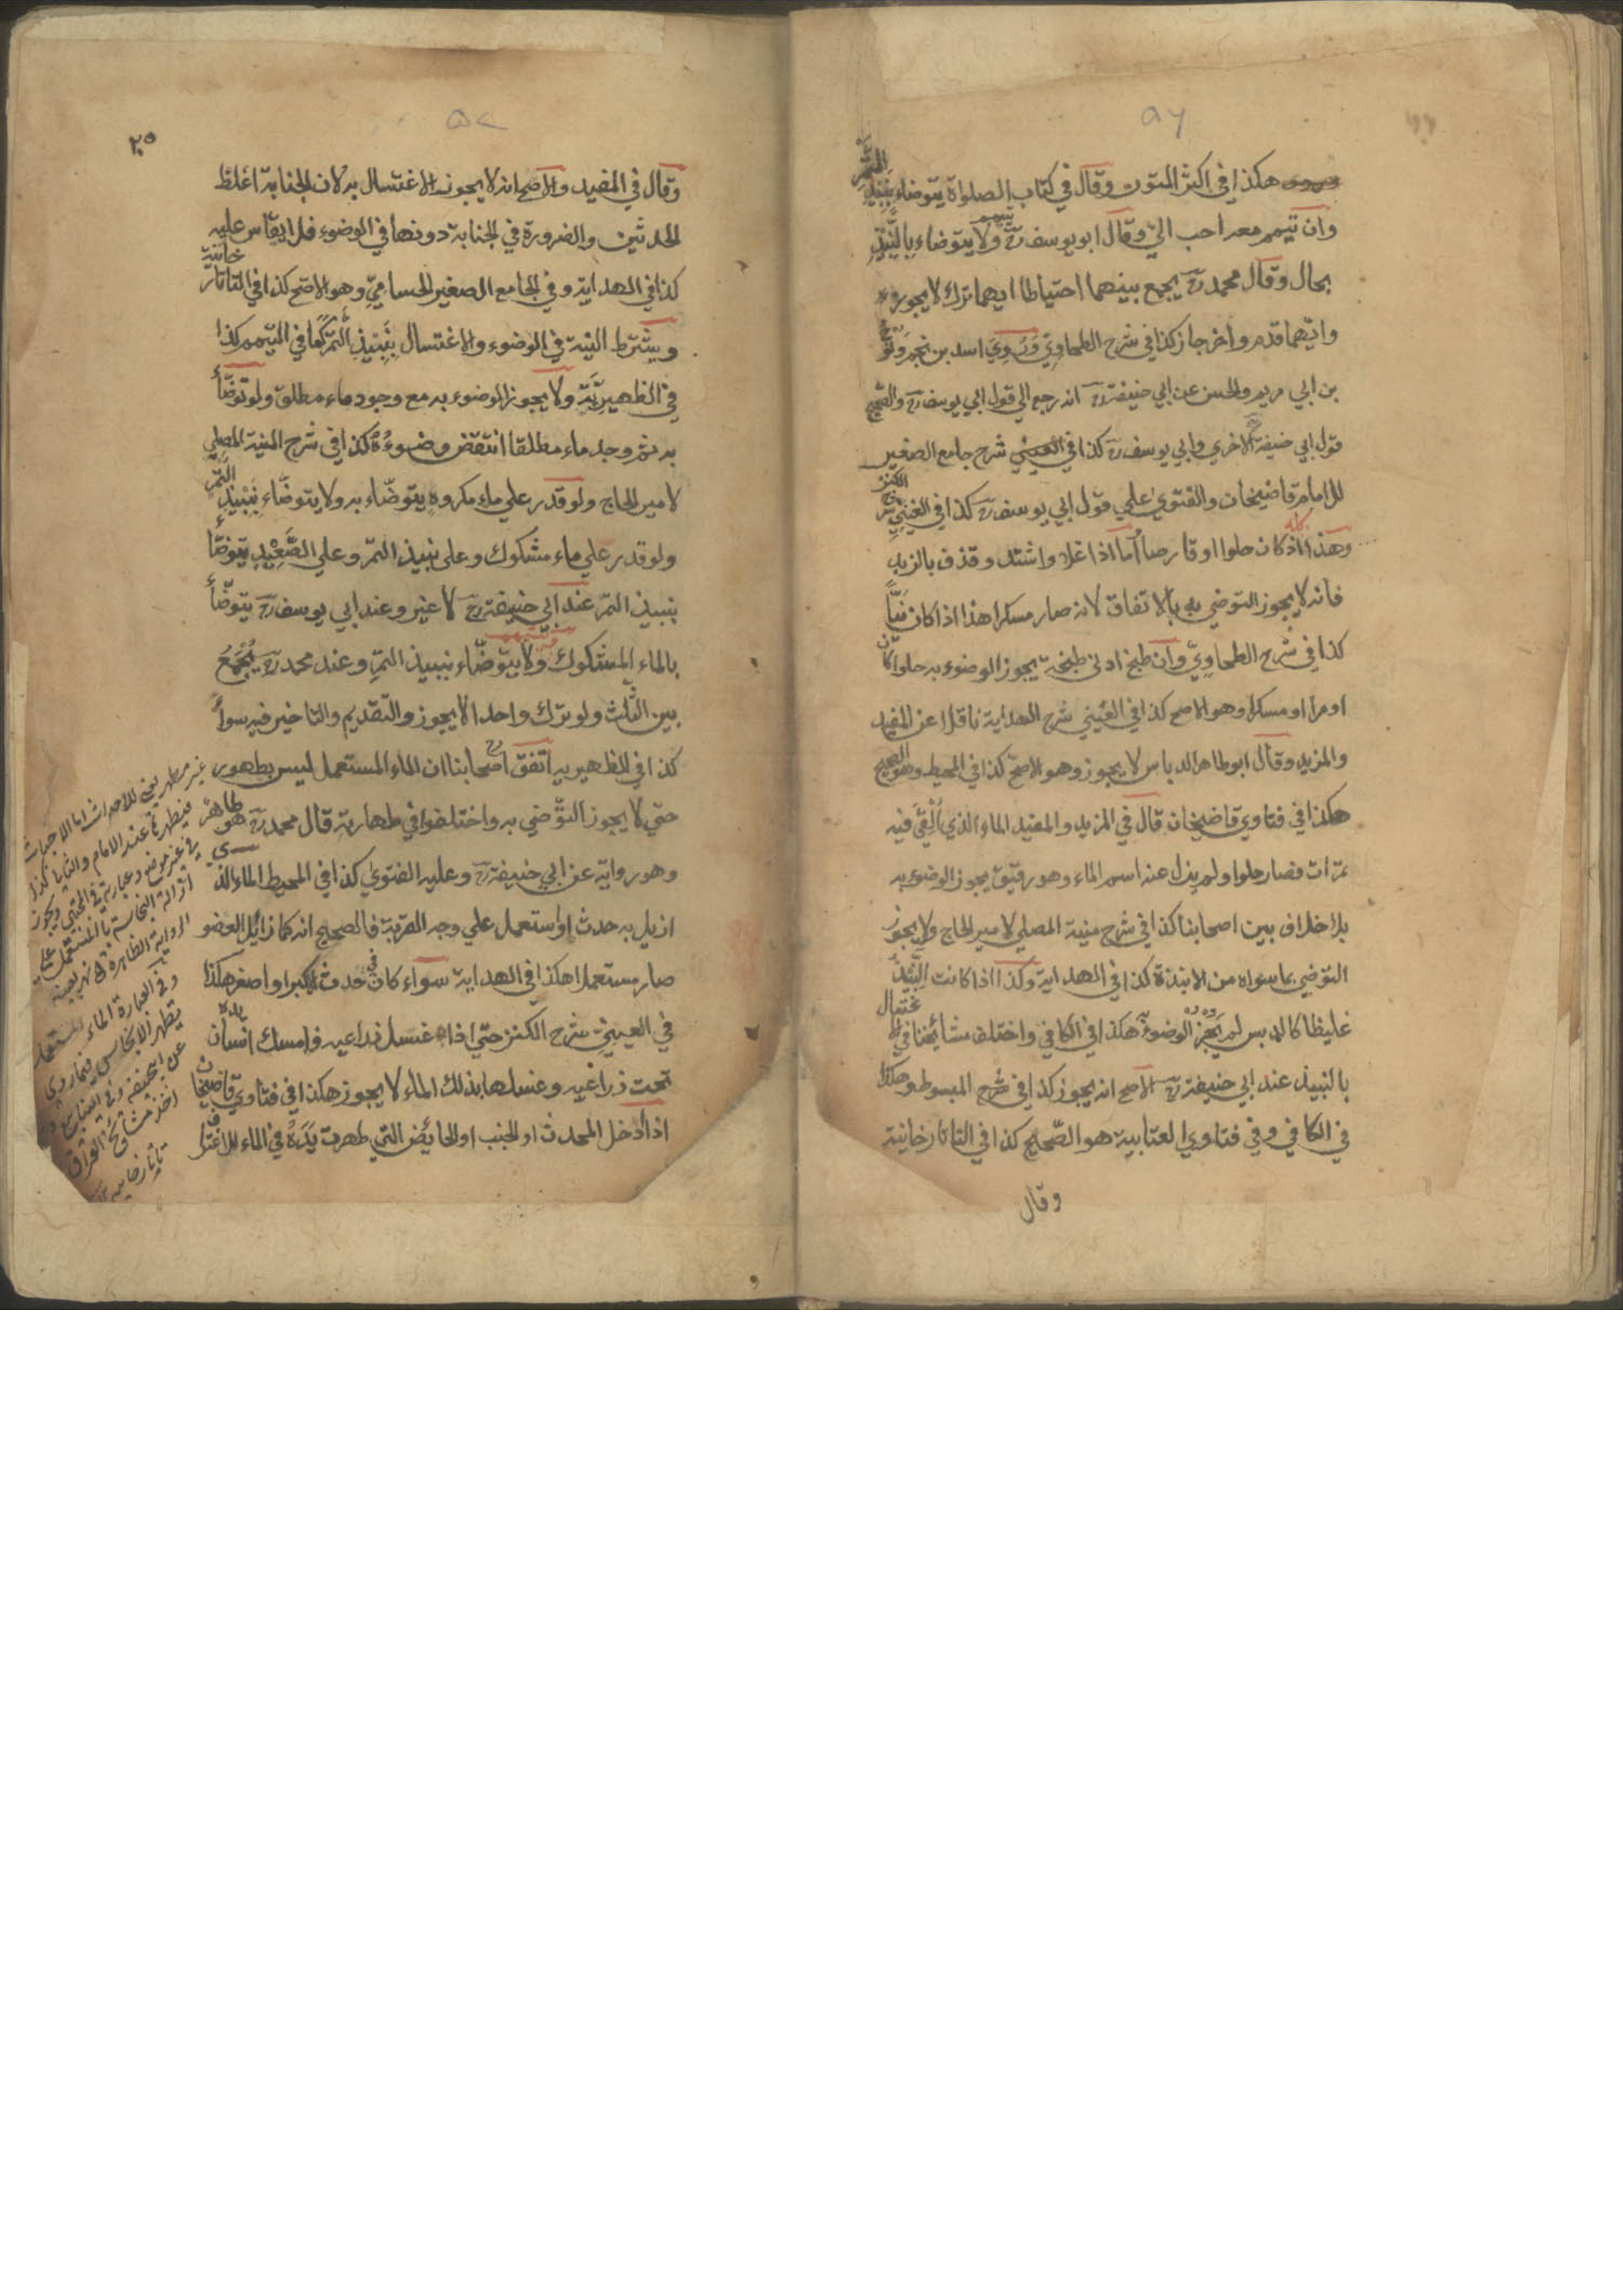 ٥٦
هكذا في اكثر المتون وقال في كتاب الصلواة يتوضاء بنبيذ التمر
وان تيمم معه احب الي وقال ابو يوسف رح يتيمم ولا يتوضاء بالنبيذ
بحال وقال محمد رح يجمع بينهما احتياطا ايهما ترك لا يجوز
وايهما قدم واخر جاز كذا في شرح الطحاوي وروي اسد بن نجم ونوح
بن ابي مريم والحسن عن ابي حنيفة رح انه رجع الي قول ابي يوسف رح والصحيح
قول ابي حنيفة الاخري وابي يوسف رح كذا في العيني شرح جامع الصغير
للامام قاضيخان والفتوي علي قول ابي يوسف رح كذا في العيني شرح الكنز
وهذا كله اذ كان حلوا او قارصا أما اذا غلا واشتد وقذف بالزبد
فانه لا يجوز التوضي به بالاتفاق لانه صار مسكرا هذا اذا كان نيّاً
كذا في شرح الطحاوي وان طبخ ادني طبخة يجوز الوضوء به حلوا كان
او مرا او مسكرا وهو الاصح كذا في العيني شرح الهداية ناقلا عن المفيد
والمزيد وقال ابو طاهر الدباس لا يجوز وهو الاصح كذا في المحيط وهو الصحيح
هكذا في فتاوي قاضيخان قال في المزيد والمفيد الماء الذي أُلْقِيَ فيه
تمرات فصار حلوا ولم يزل عنه اسم الماء وهو رقيق يجوز الوضوء به
بلا خلاف بين اصحابنا كذا في شرح منية المصلي لامير الحاج ولا يجوز
التوضي بما سواه من الانبذة كذا في الهداية وكذا اذا كانت النبيذ
غليظا كالدبس لم يجز الوضوء هكذا في الكافي واختلف مشائخنا في الاغتسال
بالنبيذ عند ابي حنيفة رح الاصح انه يجوز كذا في شرح المبسوط وهكذا
في الكافي وفي فتاوي العتابية هو الصحيح كذا في التاتارخانية
وقال
٥٧
٢٥
وقال في المفيد والاصح انه لا يجوز الاغتسال به لان الجنابة اغلظ
الحدثين والضرورة في الجنابة دونها في الوضوء فلا يقاس عليه
كذا في الهداية وفي الجامع الصغير الحسامي وهو الاصح كذا في التاتارخانية
ويشترط النية في الوضوء والاغتسال بنبيذ التمر كما في التيمم كذا
في الظهيرية ولا يجوز الوضوء به مع وجود ماء مطلق ولو توضّأ
به ثم وجد ماء مطلقا انتقض وضوءه كذا في شرح المنية المصلي
لامير الحاج ولو قدر علي ماء مكروه يتوضّاء به ولا يتوضّاء بنبيذ التمر
ولو قدر علي ماء مشكوك وعلي نبيذ التمر وعلي الصعيد يتوضّأ
بنبيذ التمر عند ابي حنيفة رح لا غير وعند ابي يوسف رح يتوضّأ
بالماء المشكوك ولا يتوضّاء بنبيذ التمر وعند محمد رح يجمع
بين الثلث ولو ترك واحدا لا يجوز والتقديم والتاخير فيه سواءً
كذا في الظهيرية اتفق اصحابنا رح ان الماء المستعمل ليس بطهور
حتي لا يجوز التوّضي به واختلفوا في طهارته قال محمد رح هو طاهر
وهو رواية عن ابي حنيفة رح وعليه الفتوي كذا في المحيط الماء الذي
ازيل به حدث او استعمل علي وجه القربة فالصحيح انه كما زائل العضو
صار مستعملا هكذا في الهداية سواء كان في حدث اكبر او اصغر هكذا
في العيني شرح الكنز حتي اذا غسل ذراعيه فامسك انسان يده
تحت ذراعيه وغسلها بذلك الماء لا يجوز هكذا في فتاوي قاضيخان
اذا أدخل المحدث او الجنب او الحائض التي طهرت يَدَهُ في الماء للاغتراف
غير مطهر يعني للاحداث اما الاخباث
فيطهرها عند الامام
في غير موضع وعبارته في المجتبي ويجوز
ازالة النجاسة بالمستعمل علي
الرواية الظاهرة
وفي العبارة الماء المستعمل
يطهر الانجاس فيما روي
اخذ مشائخ العراق